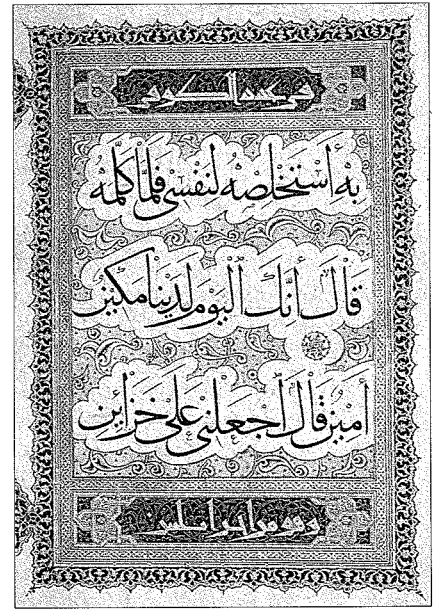 بِهِ أَسْتَخْلِصْهُ لِنَفْسِى فَلَمَّا كَلَّمَهُ
قَالَ إِنَّكَ الْيَوْمَ لَدَيْنَا مَكِينٌ
أَمِينٌ قَالَ اجْعَلْنِى عَلَى خَزَائِنِ